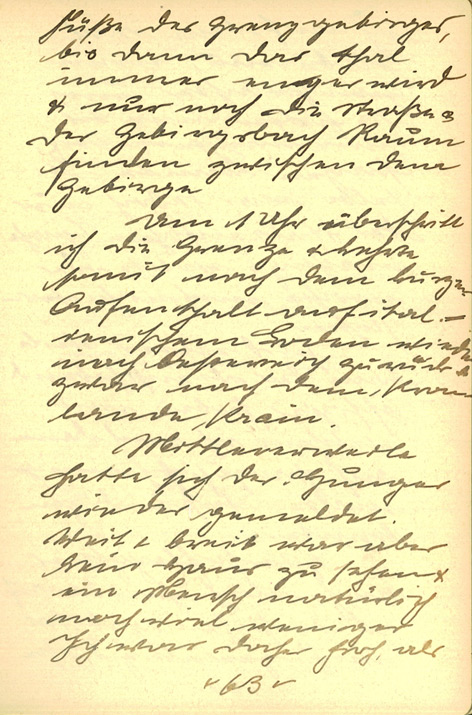 Füße des Grenzgebirges,
bis dann das Thal
immer enger wird
& nur noch die Straße &
der Gebirgsbach Raum
finden zwischen dem
Gebirge
Um 1 Uhr überschritt
ich die Grenze & kehrte
somit nach dem kurzen
Aufenthalt auf ital.-
ienischem Boden wieder
nach Oesterreich zurück &
zwar nach dem Kron-
lande Krain.
Mittlererweile
hatte sich der Hunger
wieder gemeldet.
Weit & breit war aber
kein Haus zu sehen &
ein Mensch natürlich
noch viel weniger
Ich war daher froh, als
- 63 -